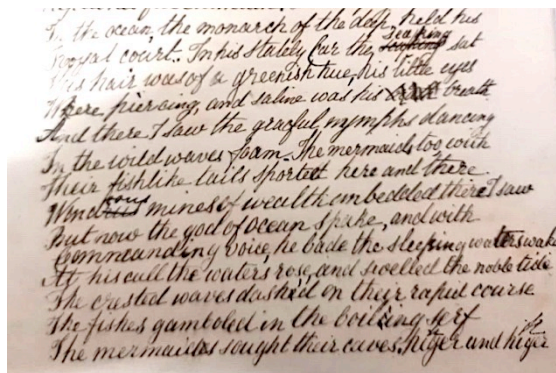 In the ocean the monarch of the deep, held his
court. In his stately the sea king sat
His hair was of a greenish hue, his little eyes
Where piercing, and saline was his breath
And there I saw the graceful nymphs dancing
In the wild waves foam. The mermaids too with
Their fishlike tails sported here and there.
Wondrous mines of wealth embedded there I saw
But now the god of Ocean spake, and with
Commanding voice, he bade the sleeping waters wake
At his call the waters rose, and swelled the noble tide
The crested waves dash'd on their rapid course
The fishes gamboled in the boiling serf
The mermaids sought their caves, higer and higer